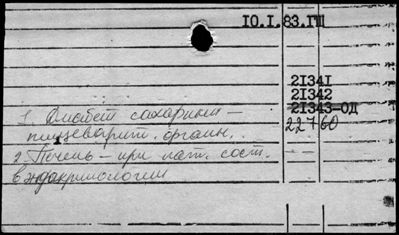 10.I.83.ГШ
21341
21342
21343-ОД
22760
1. Диабет сахарный –
пищеварит. органы.
2. Печень – при пат. сост.
в эндокринологии